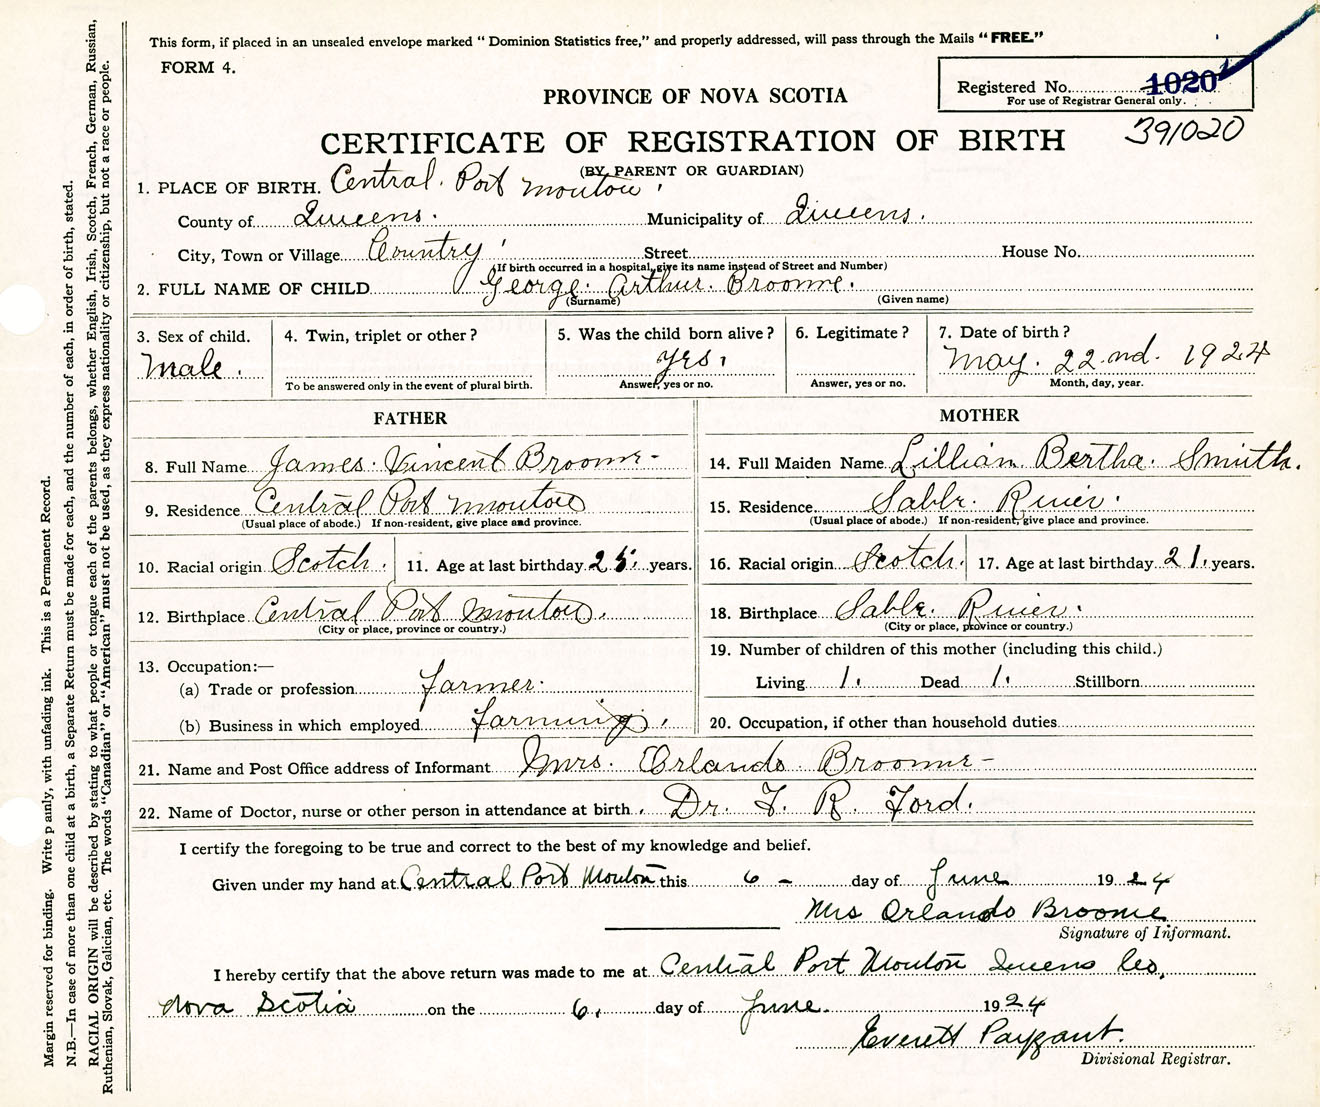 This form, if placed in an unsealed envelope marked “ Dominion Statistics free,” and properly addressed, will pass through the Mails “ FREE.”
FORM 4.
Registered No. 1020
For use of Registrar General only.
391020
PROVINCE OF NOVA SCOTIA
CERTIFICATE OF REGISTRATION OF BIRTH
(BY PARENT OR GUARDIAN)
1. PLACE OF BIRTH. Central. Port Mouton
County of Queens. Municipality of Queens.
City, Town or Village Country Street House No.
(If birth occurred in a hospital, give its name instead of Street and Number)
2. FULL NAME OF CHILD George. Arthur. Broome.
(Surname) (Given name)
3. Sex of child. Male.
4. Twin, triplet or other ?
To be answered only in the event of plural birth.
5. Was the child born alive ? yes.
Answer, yes or no.
6. Legitimate ?
Answer, yes or no.
7. Date of birth ? May. 22.nd. 1924
Month, day, year.
FATHER
8. Full Name James. Vincent Broome-
9. Residence Central Port Mouton
(Usual place of abode.) If non-resident, give place and province.
10. Racial origin Scotch. 11. Age at last birthday 25. years.
12. Birthplace Central Port Mouton.
(City or place, province or country.)
13. Occupation:—
(a) Trade or profession farmer.
(b) Business in which employed farming.
MOTHER
14. Full Maiden Name Lillian Bertha. Smith.
15. Residence Sable. River.
(Usual place of abode.) If non-resident, give place and province.
16. Racial origin Scotch. 17. Age at last birthday 21. years.
18. Birthplace Sable. River.
(City or place, province or country.)
19. Number of children of this mother (including this child.)
Living 1. Dead 1. Stillborn
20. Occupation, if other than household duties
21. Name and Post Office address of Informant Mrs. Orlando. Broome-
22. Name of Doctor, nurse or other person in attendance at birth Dr. F. R. Ford.
I certify the foregoing to be true and correct to the best of my knowledge and belief.
Given under my hand at Central Port Mouton this 6 - day of June 1924
Mrs Orlando Broome.
Signature of Informant.
I hereby certify that the above return was made to me at Central Port Mouton Queens Co,
Nova Scotia on the 6. day of June. 1924
Everett Payzant.
Divisional Registrar.
Margin reserved for binding. Write p anly, with unfading ink. This is a Permanent Record.
N.B.—In case of more than one child at a birth, a Separate Return must be made for each, and the number of each, in order of birth, stated.
RACIAL ORIGIN will be described by stating to what people or tongue each of the parents belongs, whether English, Irish, Scotch, French, German, Russian,
Ruthenian, Slovak, Galician, etc. The words “Canadian” or “American” must not be used, as they express nationality or citizenship, but not a race or people.